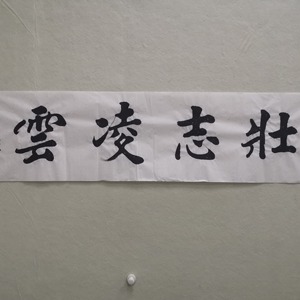 壯志凌雲